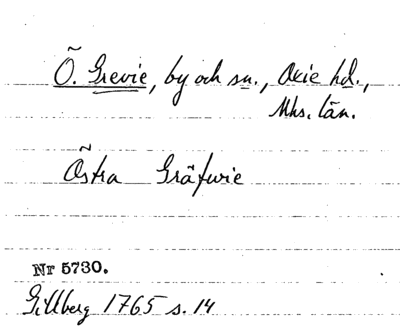 Ö. Grevie, by och sn., Oxie hd.,
Mhs. län.
Östra Gräfwie
Nr 5730.
Gillberg 1765 s. 14